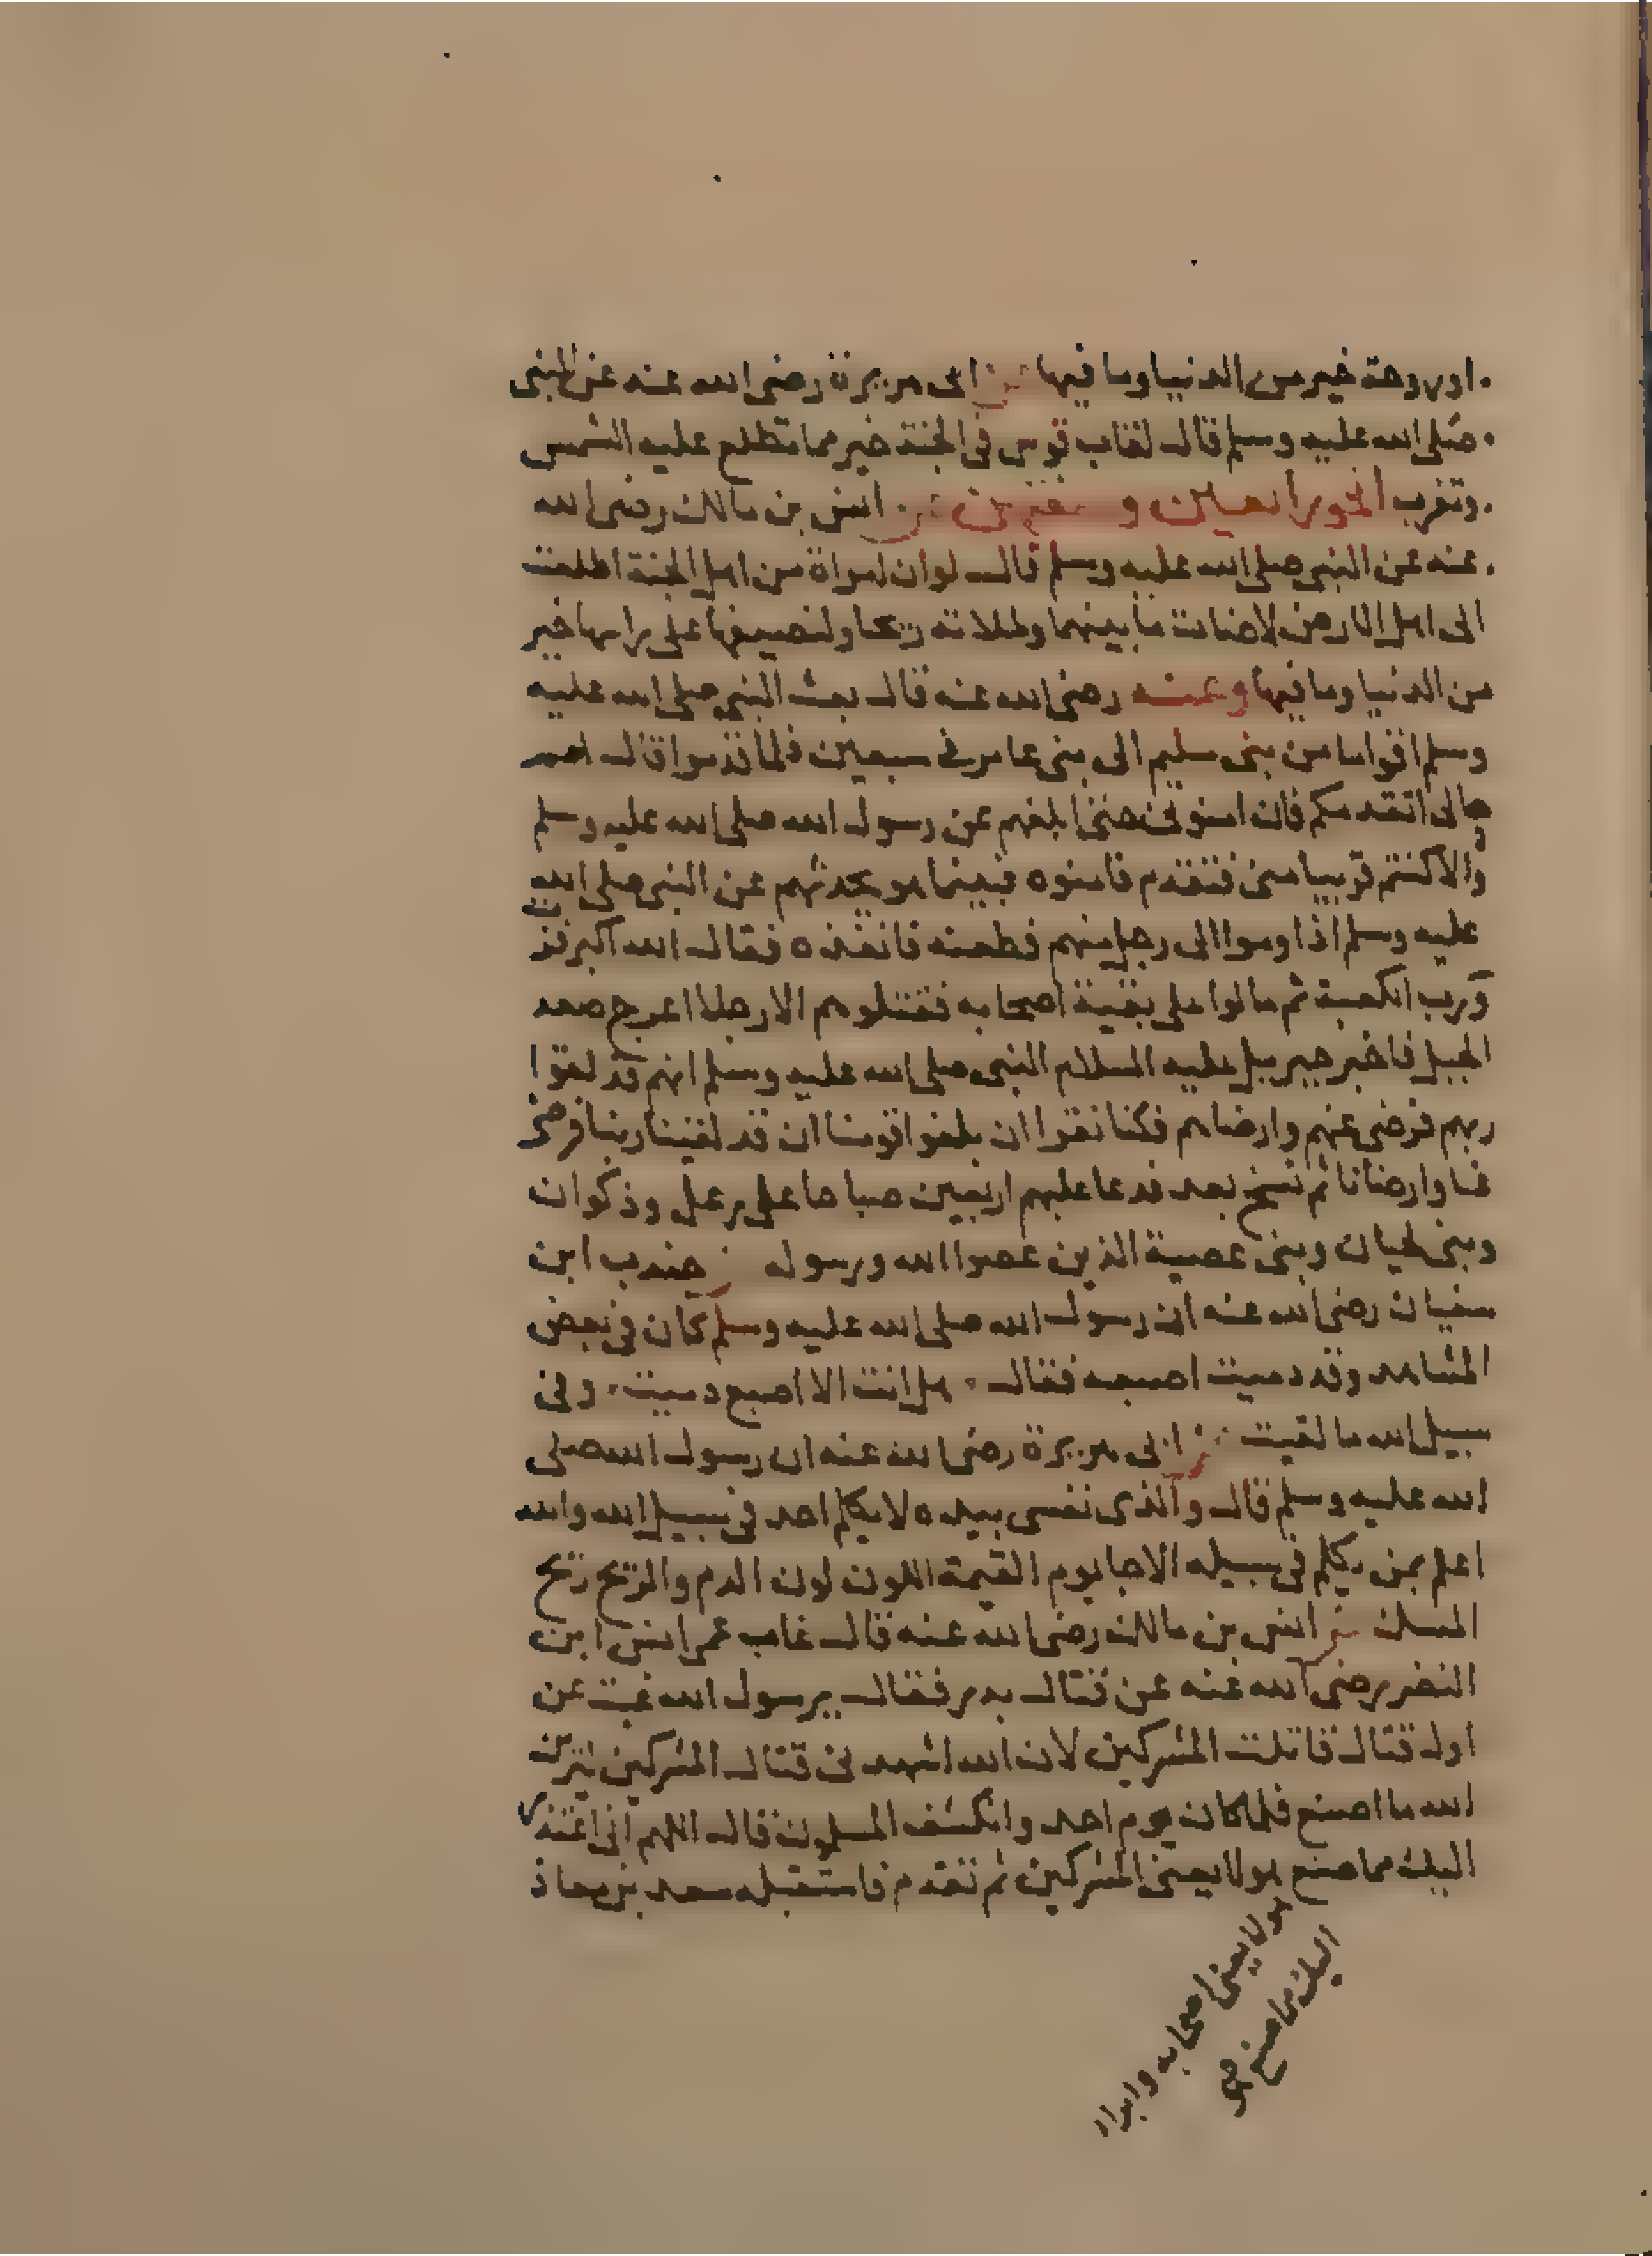 او روحة خير من الدنيا وما فيها عن ابى هريرة رضى الله عنه عن النبى
صلى الله عليه وسلم قال لقاب قوس فى الجنة خير مما تطلع عليه الشمس
وتغرب الحور العين و صفتهن عن انس بن مالك رضى الله
عنه عن النبى صلى الله عليه وسلم قال لو ان امراة من اهل الجنة اطلعت
الى اهل الارض لاضات ما بينهما ولملاته ريحا ولنصيفها على راسها خير
من الدنيا وما فيها وعنه رضى الله عنه قال بعث النبى صلى الله عليه
وسلم اقواما من بنى سليم الى بنى عامر فى سبعين فلما قدموا قال لهم
خالى اتقدمكم فان امنونى حتى ابلغهم عن رسول الله صلى الله عليه وسلم
والا كنتم قريبا منى فتقدم فامنوه فبينما هو يحدثهم عن النبى صلى الله
عليه وسلم اذ اوموا الى رجل منهم فطعنه فانفذه فقال الله اكبر فزت
ورب الكعبة ثم مالوا على بقية اصحابه فقتلوهم الا رجلا اعرج صعد
الجبل فاخبر جبريل عليه السلام النبى صلى الله عليه وسلم انهم قد لقوا
ربهم فرضى عنهم وارضاهم فكنا نقرا ان بلغوا قومنا ان قد لقينا ربنا فرضى
عنا وارضانا ثم نسخ بعد فدعا عليهم اربعين صباحا على رعل وذكوان
وبنى لحيان وبنى عصية الذين عصوا الله ورسوله عن جندب ابن
سفيان رضى الله عنه ان رسول الله صلى الله عليه وسلم كان فى بعض
المشاهد وقد دميت اصبعه فقال هل انت الا اصبع دميت وفى
سبيل الله ما لقيت عن ابى هريرة رضى الله عنه ان رسول الله صلى
الله عليه وسلم قال والذى نفسى بيده لا يكلم احد فى سبيل الله والله
اعلم بمن يكلم فى سبيله الا جا يوم القيمة اللون لون الدم والريح ريح
المسك عن انس بن مالك رضى الله عنه قال غاب عمى انس ابن
النضر رضى الله عنه عن قتال بدر فقال يرسول الله غبت عن
اول قتال قاتلت المشركين لان الله اشهدنى قتال المشركين ليرين
الله ما اصنع فلما كان يوم احد وانكشف المسلمون قال اللهم انى اعتذر
اليك مما صنع هولا يعنى المشركين ثم تقدم فاستقبله سعد بن معاذ
هولا يعنى اصحابه وابراا
اليك مما صنع صح